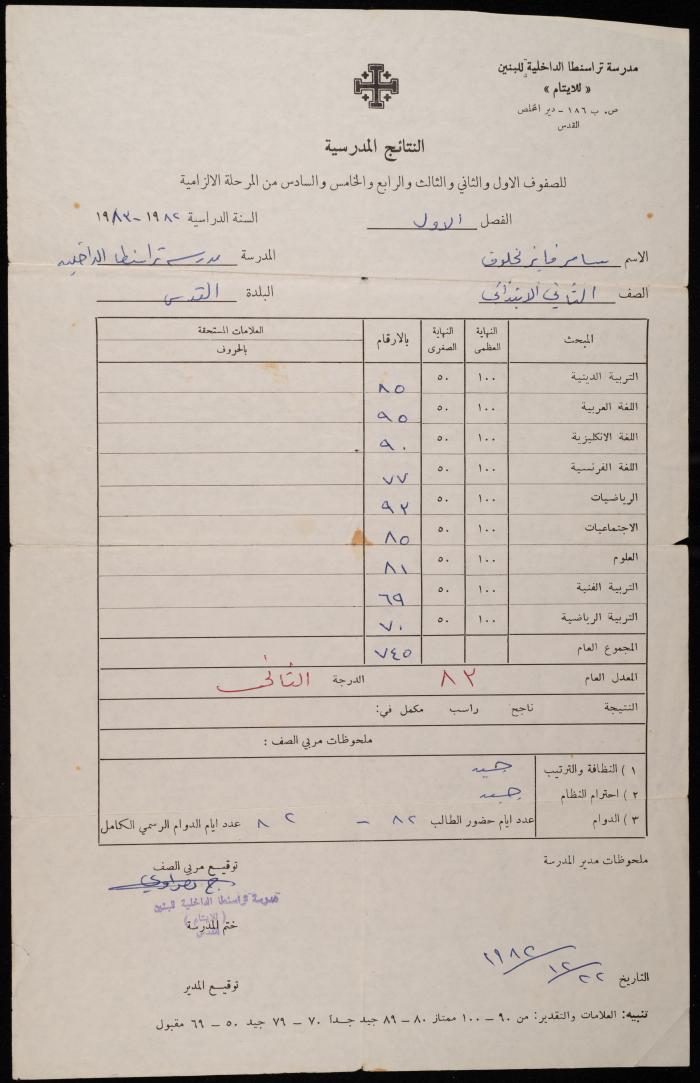 مدرسة تراسنطا الداخلية للبنين
« للايتام »
ص. ب ١٨٦ - دير المخلص
القدس
النتائج المدرسية
للصفوف الاول والثاني والثالث والرابع والخامس والسادس من المرحلة الالزامية
الفصل الاول السنة الدراسية ١٩٨٢ - ١٩٨٣
الاسم سامر فايز نخلوق المدرسة مدرسة تراسنطا الداخلية
الصف الثاني الابتدائي البلدة القدس
المبحث النهاية العظمى النهاية الصغرى بالارقام العلامات المستحقة بالحروف
التربية الدينية ١٠٠ ٥٠ ٨٥
اللغة العربية ١٠٠ ٥٠ ٩٥
اللغة الانكليزية ١٠٠ ٥٠ ٩٠
اللغة الفرنسية ١٠٠ ٥٠ ٧٧
الرياضيات ١٠٠ ٥٠ ٩٣
الاجتماعيات ١٠٠ ٥٠ ٨٥
العلوم ١٠٠ ٥٠ ٨١
التربية الفنية ١٠٠ ٥٠ ٦٩
التربية الرياضية ١٠٠ ٥٠ ٧٠
المجموع العام ٧٤٥
المعدل العام ٨٣ الدرجة الثاني
النتيجة ناجح راسب مكمل في:
ملحوظات مربي الصف :
١ ) النظافة والترتيب جيد
٢ ) احترام النظام جيد
٣ ) الدوام عدد ايام حضور الطالب ٨٢ - عدد ايام الدوام الرسمي الكامل ٨٢
ملحوظات مدير المدرسة توقيع مربي الصف
مدرسة تراسنطا الداخلية للبنين
( للايتام )
القدس
ختم المدرسة
التاريخ ٢٢/١٢/١٩٨٢
توقيع المدير
تنبيه: العلامات والتقدير: من ٩٠ - ١٠٠ ممتاز ٨٠ - ٨٩ جيد جداً ٧٠ - ٧٩ جيد ٥٠ - ٦٩ مقبول